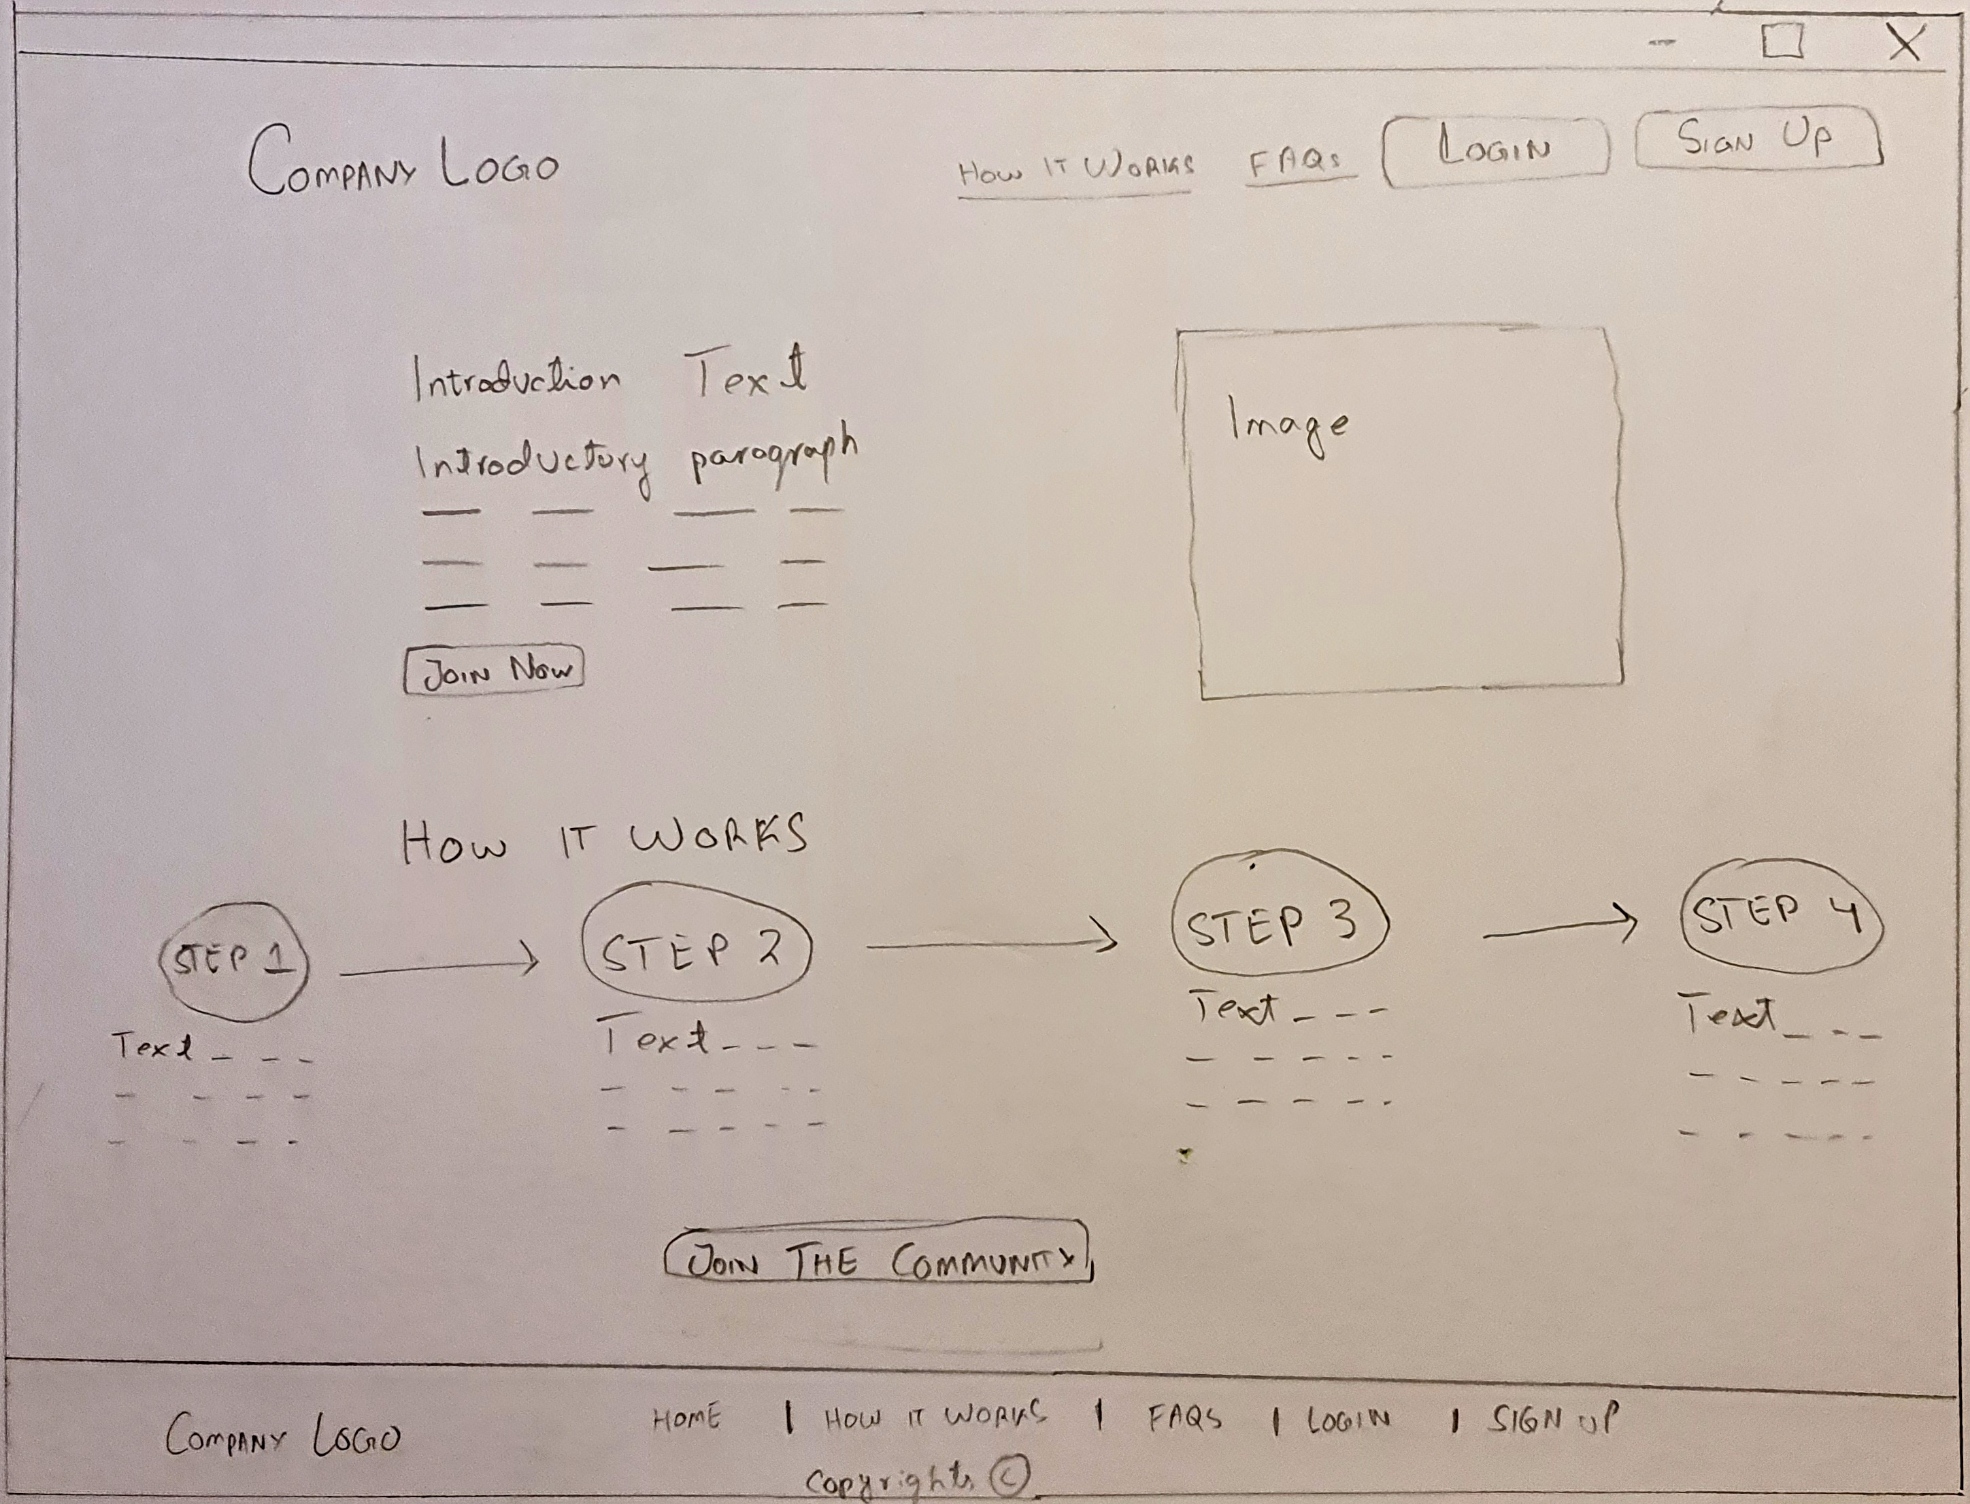 COMPANY LOGO
How IT WORKS FAQs LOGIN SIGN UP
Introduction Text
Introductory paragraph
Image
JOIN NOW
HOW IT WORKS
STEP 1 STEP 2 STEP 3 STEP 4
Text Text Text Text
JOIN THE COMMUNITY
COMPANY LOGO
HOME | HOW IT WORKS | FAQS | LOGIN | SIGN UP
Copyrights ©